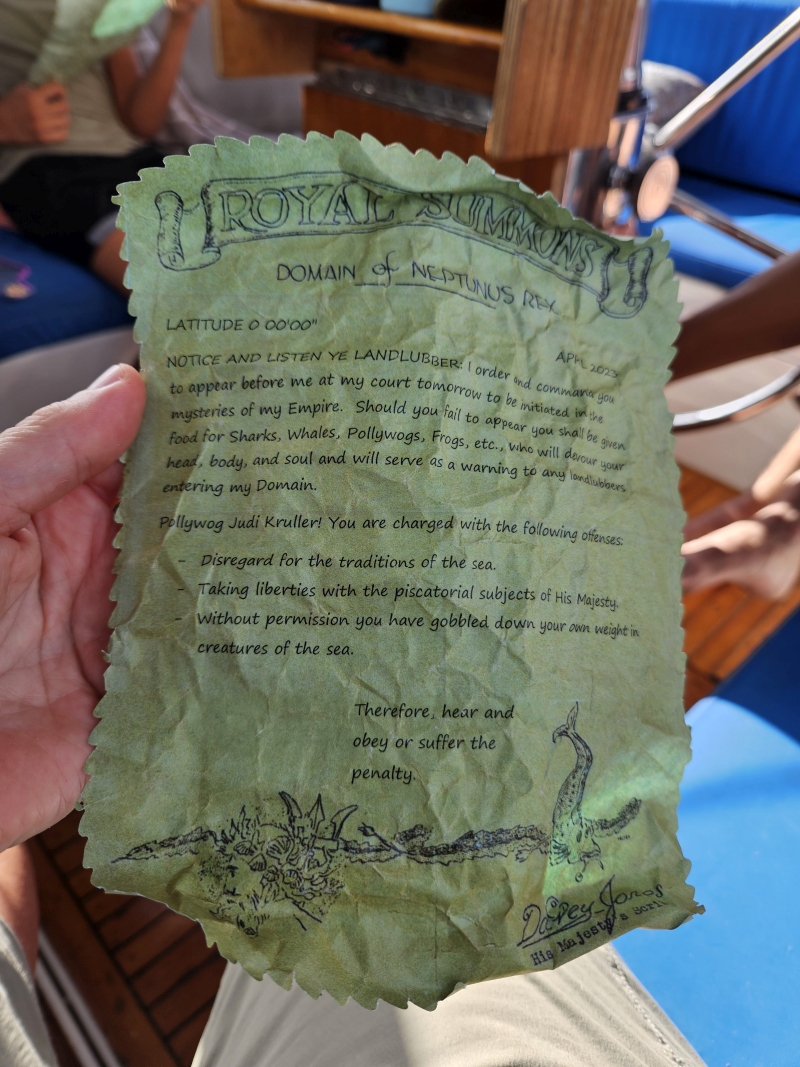 ROYAL SUMMONS
DOMAIN of NEPTUNUS REX
LATITUDE 0 00'00"
APRL 2023
NOTICE AND LISTEN YE LANDLUBBER: I order and command you
to appear before me at my court tomorrow to be initiated in the
mysteries of my Empire. Should you fail to appear you shall be given
food for Sharks, Whales, Pollywogs, Frogs, etc., who will devour your
head, body, and soul and will serve as a warning to any landlubbers
entering my Domain.
Pollywog Judi Kruller! You are charged with the following offenses:
- Disregard for the traditions of the sea.
- Taking liberties with the piscatorial subjects of His Majesty.
- Without permission you have gobbled down your own weight in
creatures of the sea.
Therefore, hear and
obey or suffer the
penalty.
Davey Jones
His Majesty's